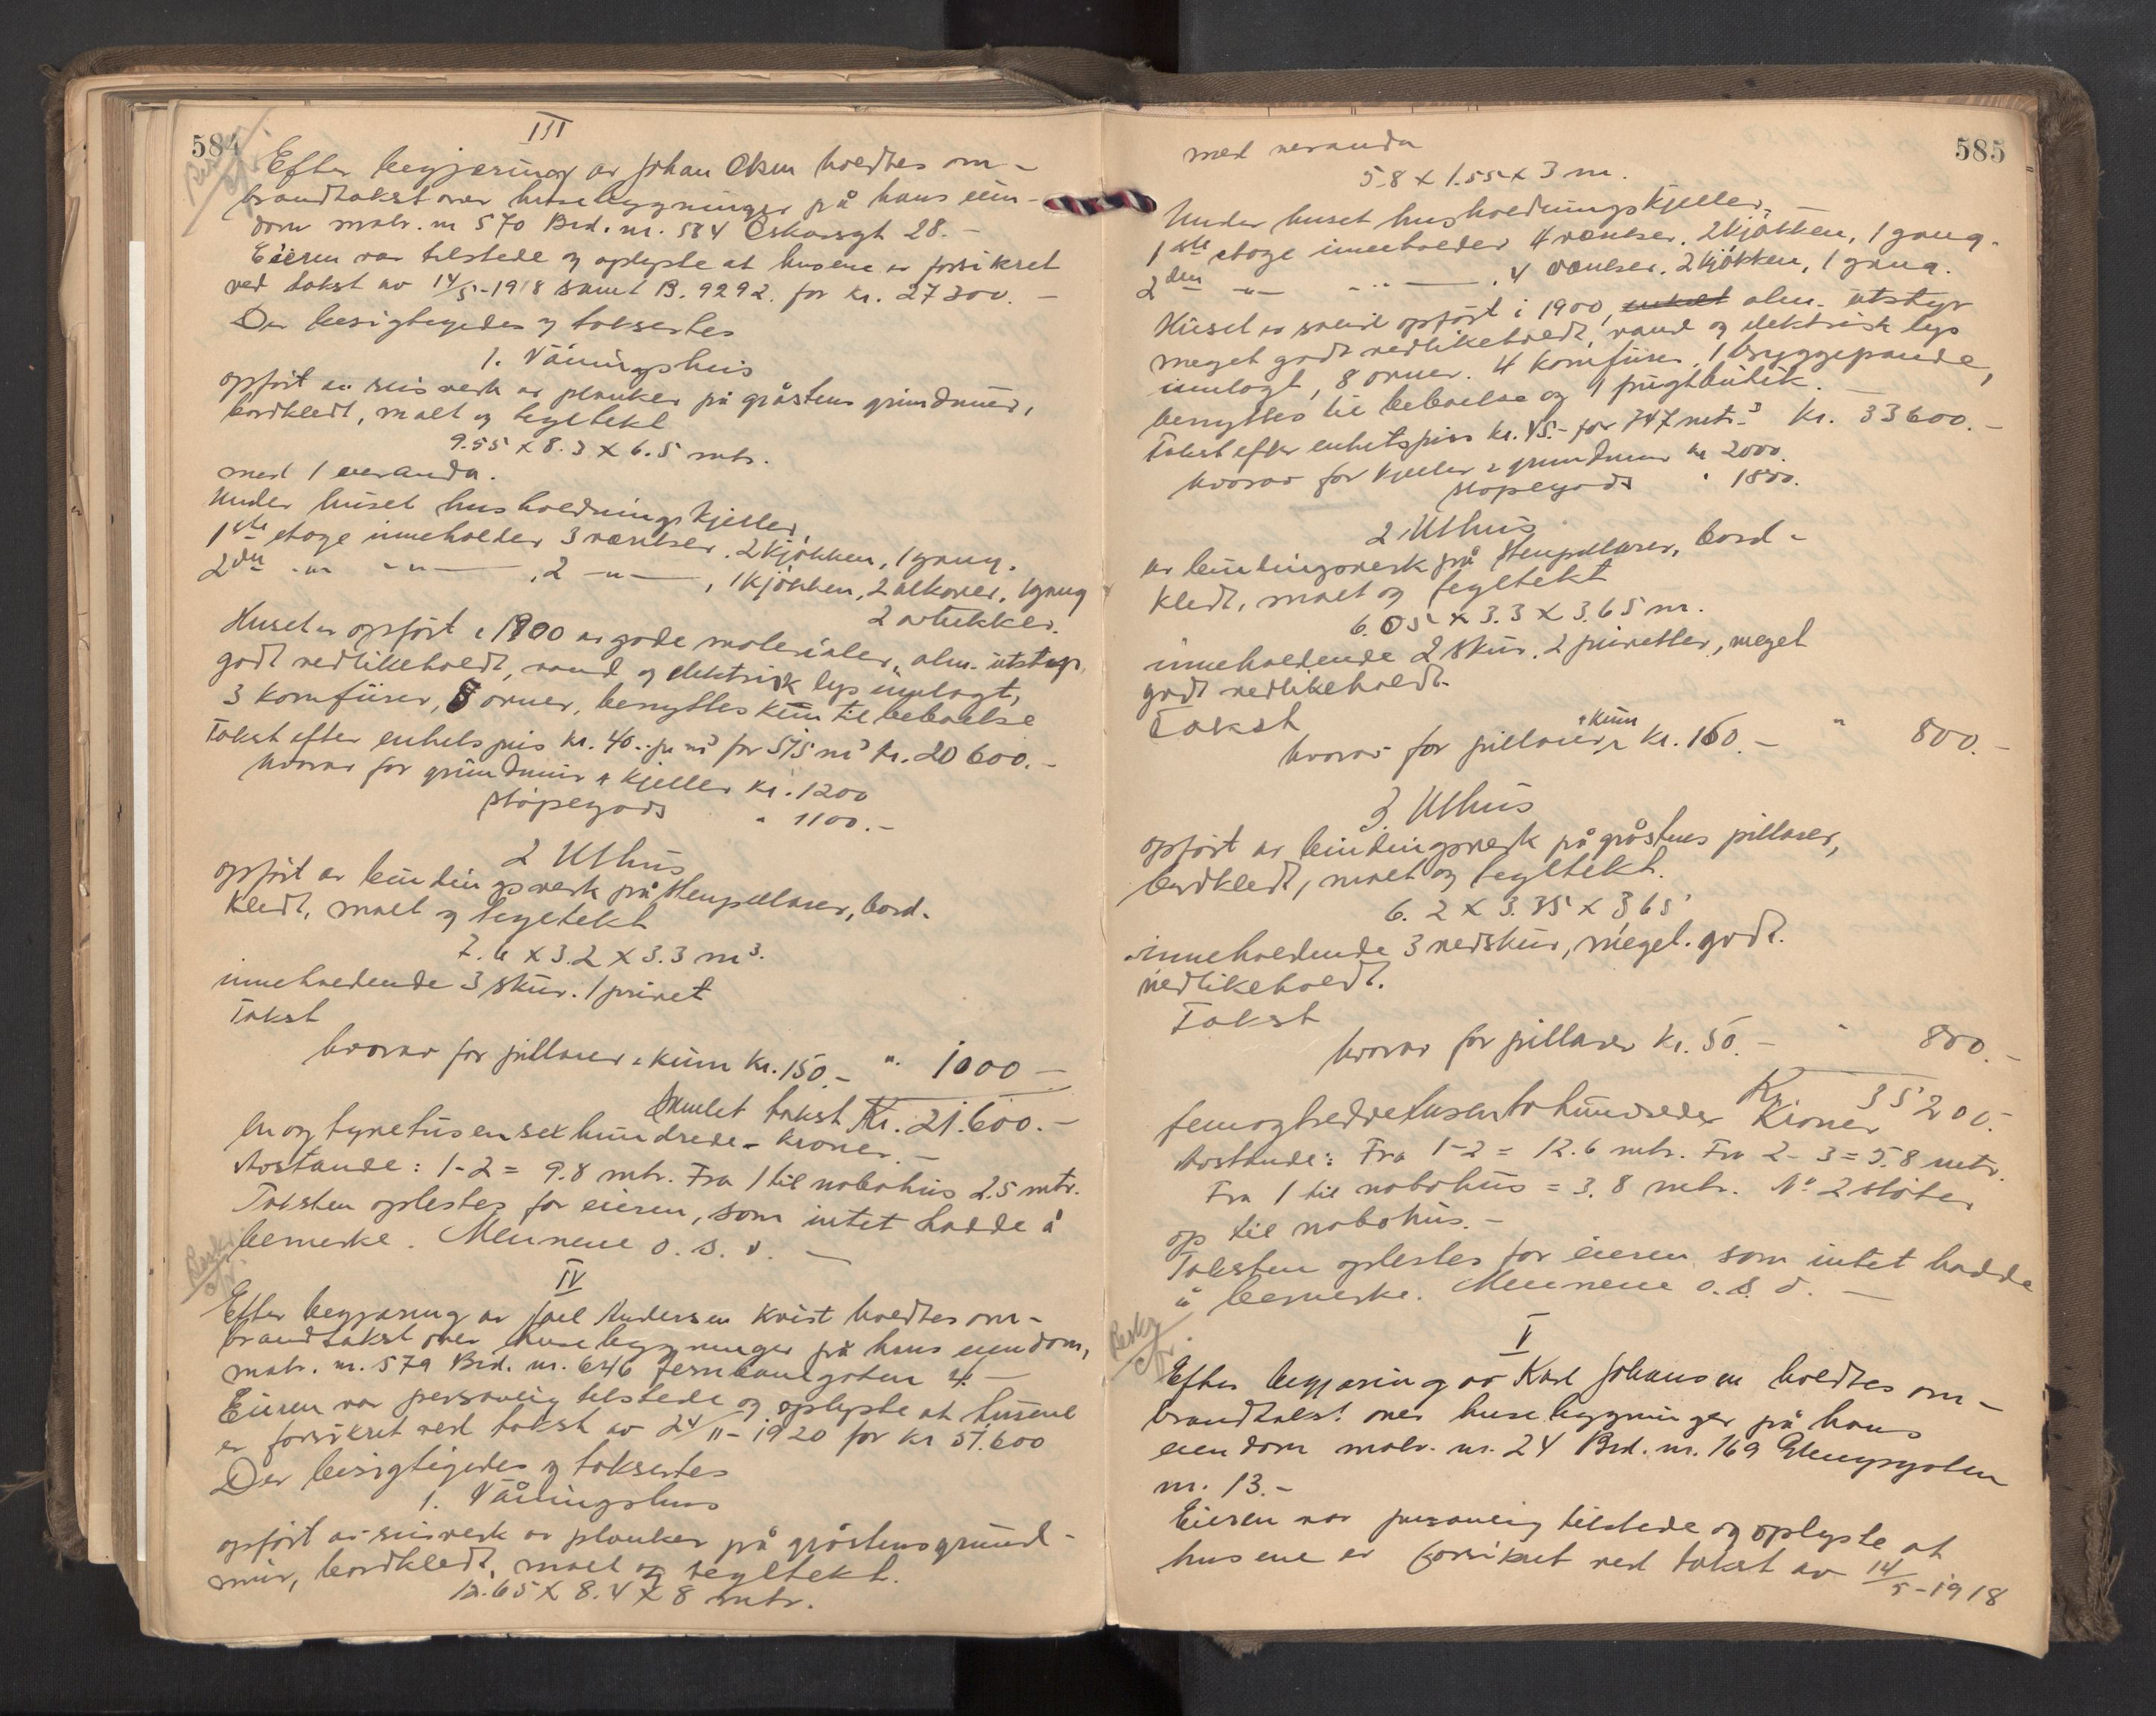 584
III
Efter begjæring av Johan Olsen holdtes om-
brandtakst over husebygninger på hans eien-
dom matr. nr 570 Brd. nr. 584 Oskarsgt 28.-
Eieren var tilstede og oplyste at husene er forsikret
ved takst av 14/5-1918 samt B. 9292. for kr. 27300.-
Der besigtigedes og taksertes
1. Våningshus
opført av reisverk av planker på gråstens grundmur,
bordkledt, malt og tegltekt
9.55 x 8.3 x 6.5 mtr.
med 1 veranda.
Under huset husholdningskjeller
1ste etage inneholder 3 værelser. 2 kjøkken, 1 gang.
2den -"- -"- , 2 -"- , 1 kjøkken, 2 alkover, 1 gang
2 avtrekker.
Huset er opført i 1900 av gode materialer, alm. utstyr,
godt vedlikeholdt, vand og elektrisk lys innlagt,
3 komfurer, 8 ovner, benyttes kun til beboelse
Takst efter enhetspris kr. 40.- pr m³ for 515 m³ kr. 20600.-
hvorav for grundmur & kjeller kr. 1200
støpegods " 1100.-
2 Uthus
opført av bindingsverk på stenpillarer, bord-
kledt, malt og tegltekt
7.6 x 3.2 x 3.3 m3.
inneholdende 3 skur. 1 privet
Takst
hvorav for pillarer & kum kr. 150.- " 1000 -
Samlet takst Kr. 21.600.-
en og tyvetusensekshundrede - kroner.-
Avstande: 1-2 = 9.8 mtr. Fra 1 til nabohus 2.5 mtr.
Taksten oplestes for eieren, som intet hadde å
bemerke. Mennene o. s. v. -
IV
Efter begjæring av Joel Andersen Kvist holdtes om-
brandtakst over husebygninger på hans eiendom,
matr. nr. 579 Brd. nr. 646 Jernbanegaten 4.-
Eieren var personlig tilstede og oplyste at husene
er forsikret ved takst av 24/11-1920 for kr 57.600
Der besigtigedes og taksertes
1. Våningshus
opført av reisverk av planker på gråstensgrund-
mur, bordkledt, malt og tegltekt.
12.65 x 8.4 x 8 mtr.
585
med veranda
5.8 x 1.55 x 3 m.
Under huset husholdningskjeller, -
1ste etage inneholder 4 værelser. 2 kjøkken, 1 gang.
2den -"- -"- , 4 værelser. 2 kjøkken, 1 gang.
Huset er solid opført i 1900, enkelt alm. utstyr
meget godt vedlikeholdt, vand og elektrisk lys
innlagt, 8 ovner. 4 komfurer, 1 bryggepande,
benyttes til beboelse og 1 frugtbutik. -
Takst efter enhetspris kr. 45.- for 747 mtr.3 Kr. 33600.-
hvorav for kjeller & grundmur kr 2000.
støpegods " 1800.
2 Uthus
av bindingsverk på stenpillarer, bord-
kledt, malt og tegltekt
6.05 x 3.3 x 3.65 m.
inneholdende 2 skur. 2 privetter, meget
godt vedlikeholdt.
Takst
hvorav for pillarer & kum kr. 160.- " 800.-
3. Uthus
opført av bindingsverk på gråstens pillarer,
bordkledt, malt og tegltekt.
6.2 x 3.35 x 3,65
inneholdende 3 vedskur, meget godt
vedlikeholdt.
Takst
hvorav for pillarer kr. 50.- " 800.-
Kr. 35200.-
femogtreddetusentohundreder Kroner
Avstande: Fra 1-2 = 12.6 mtr. Fra 2-3 = 5.8 mtr.
Fra 1 til nabohus = 3.8 mtr. No 2 støter
op til nabohus.-
Taksten oplestes for eieren som intet hadde
å bemerke. Mennene o. s. v. -
V
Efter begjæring av Karl Johansen holdtes om-
brandtakst over husebygninger på hans
eiendom matr. nr. 24 Brd. nr. 169 Glengsgaten
nr. 13.-
Eieren var personlig tilstede og oplyste at
husene er forsikret ved takst av 14/5-1918